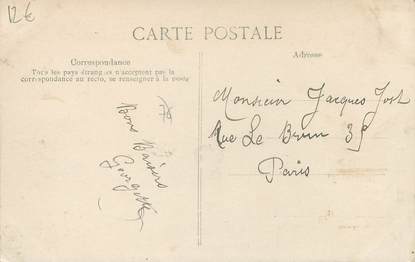 12€
CARTE POSTALE
Correspondance
Tous les pays étrangers n'acceptent pas la
correspondance au recto, se renseigner à la poste
Bons Baisers
Georgette
Adresse
Monsieur Jacques Jost
Rue Le Brun
Paris